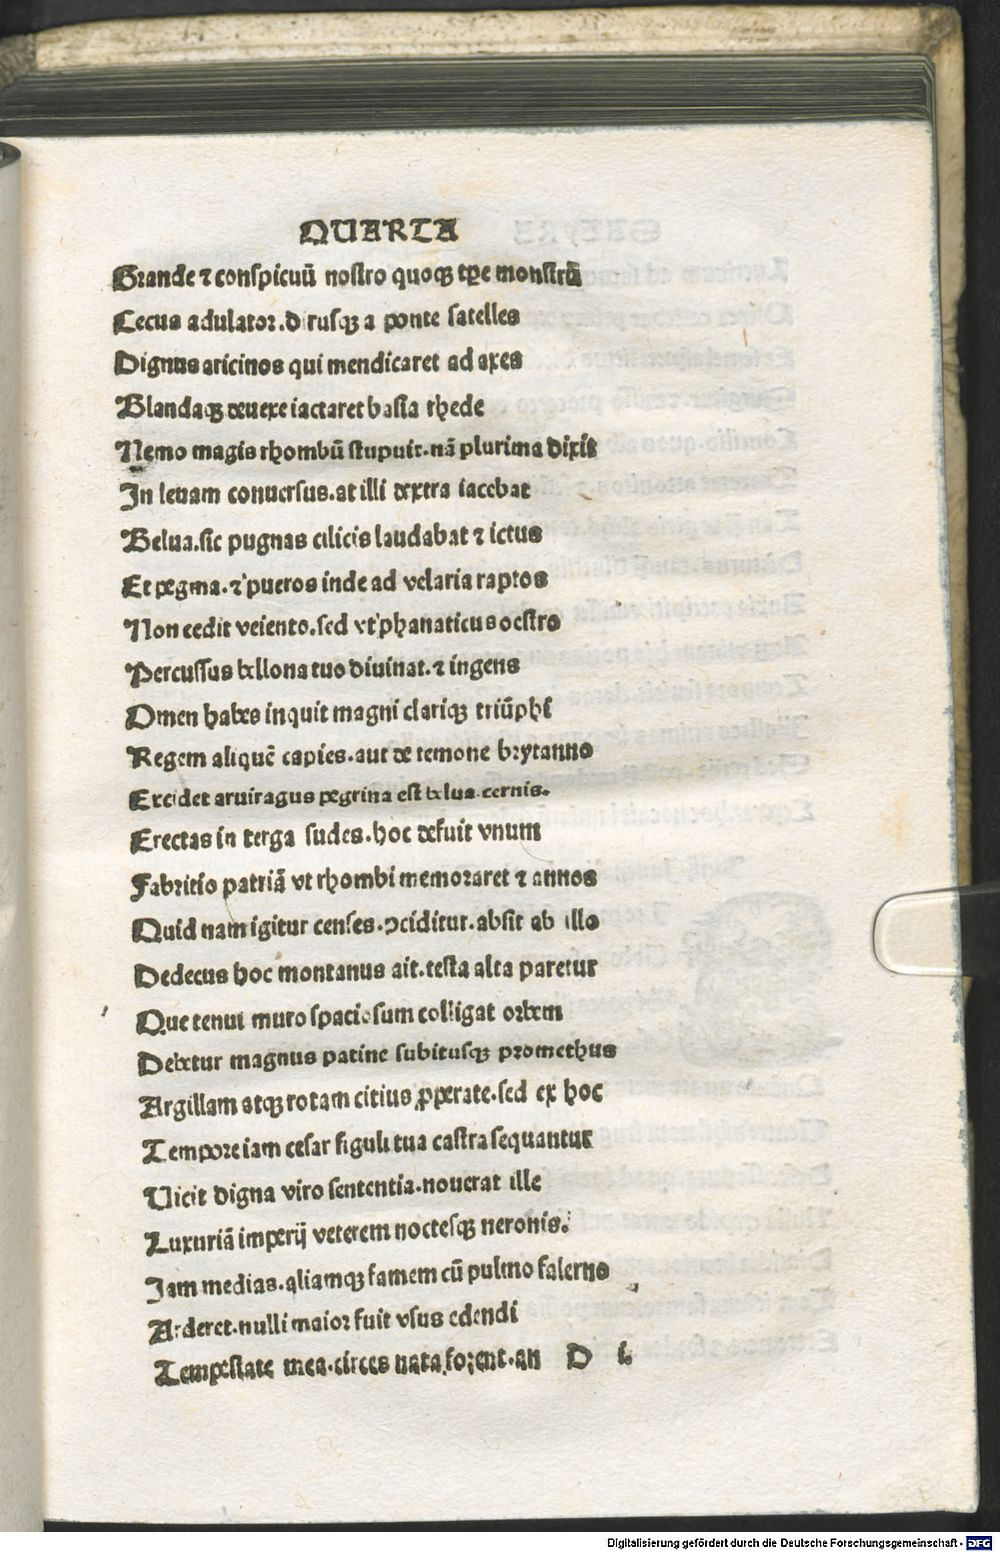 QUARTA
Grande ⁊ conspicuū nostro quoqꝫ tꝑe monstrū
Cecus adulator.dirusqꝫ a ponte satelles
Dignus aricinos qui mendicaret ad axes
Blandaqꝫ deuexe iactaret basia rhede
Nemo magis rhombū stupuit.nā plurima dixit
In leuam conuersus.at illi dextra iacebat
Belua.sic pugnas cilicis laudabat ⁊ ictus
Et pegma.⁊ pueros inde ad velaria raptos
Non cedit veiento.sed vt phanaticus oestro
Percussus bellona tuo diuinat.⁊ ingens
Omen habes inquit magni clariqꝫ triūphi
Regem aliquē capies.aut de temone brytanno
Excidet aruiragus pegrina est belua.cernis.
Erectas in terga sudes.hoc defuit vnum
Fabritio patriā vt rhombi memoraret ⁊ annos
Quid nam igitur censes.ↄciditur.absit ab illo
Dedecus hoc montanus ait.testa alta paretur
Que tenui muro spaciosum colligat orbem
Debetur magnus patine subitusqꝫ promethus
Argillam atqꝫ rotam citius ꝓperate.sed ex hoc
Tempore iam cesar figuli tua castra sequantur
Uicit digna viro sententia.nouerat ille
Luxuriā imperij veterem noctesqꝫ neronis.
Iam medias.aliamqꝫ famem cū pulmo falerno
Arderet.nulli maior fuit vsus edendi
Tempestate mea.circes nata forent.an D i.
Digitalisierung gefördert durch die Deutsche Forschungsgemeinschaft - DFG